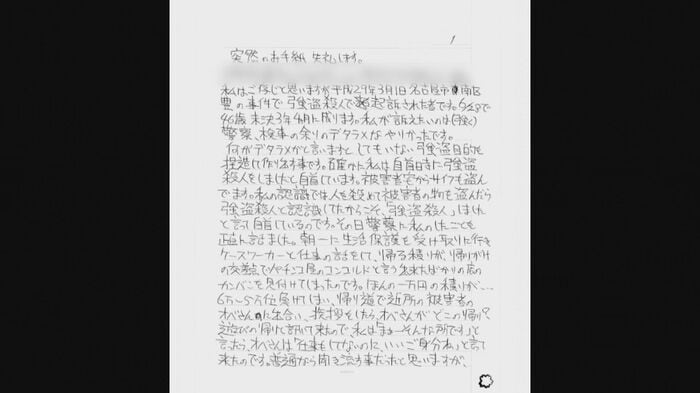 1
突然のお手紙 失礼します。
私はご存じと思いますが平成29年3月1日名古屋市南区
の事件で強盗殺人で起訴された者です。
46歳 未決3年4月に成ります。私が訴えたいのは
警察、検事の余りのデタラメな やりかたです。
何がデタラメかと言いますと してもいない強盗目的を
捏造して作り出す事です。確かに私は自首時に強盗
殺人をしましたと自首しています。被害者宅からサイフも盗ん
でます。私の認識では人を殺めて被害者の物を盗んだら
強盗殺人と認識してたからこそ、「強盗殺人」しました
と言って自首しているのです。その日警察に私のしたことも
正直に話ました。朝一に生活保護を受け取りに行き
ケースワーカーと仕事の話をして、帰る積りが、帰りがけ
の交差点でパチンコ屋のコンコルドと言う出来たばかりの店の
カンバンを見付けてしまったのです。ほんの一万円の積りが…
6万〜5万位負けてしまい、帰り道で近所の被害者の
オバさんに出合い、挨拶をしたら、オバさんが どこの帰り？
遊びの帰りと訊いて来たので、私は「まぁーそんな所です」と
言ったら、オバさんは「仕事もしてないのに、いいご身分ね」と言って
来たのです。普通なら聞き流す事だったと思いますが、